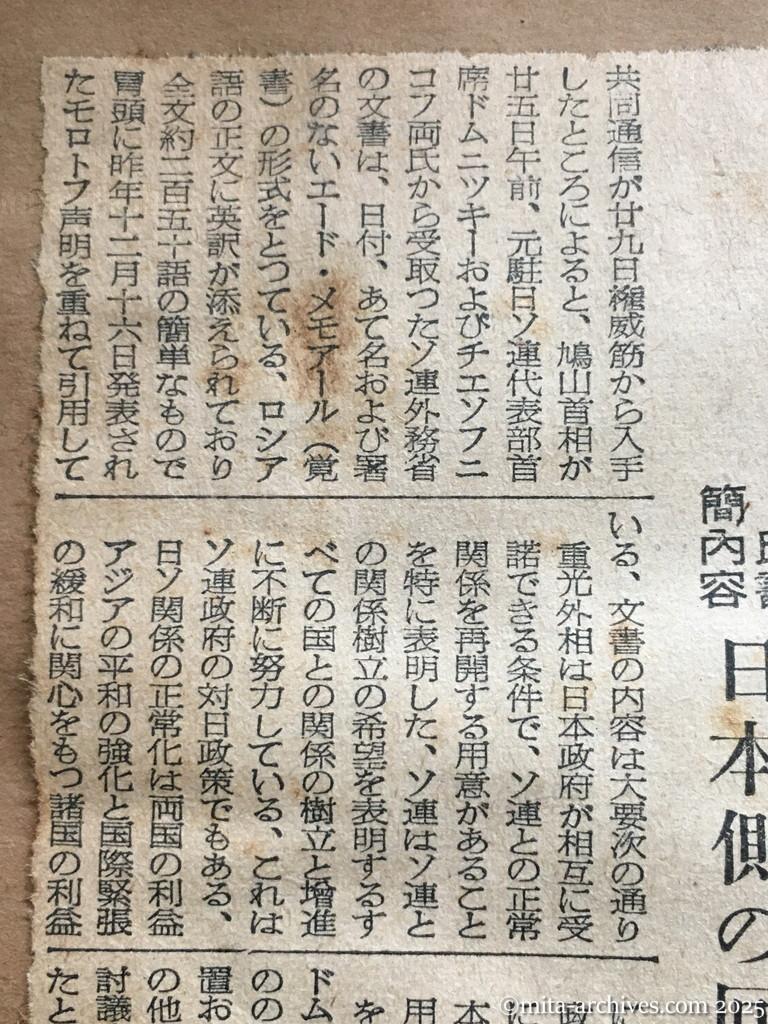 簡内容
日本側の
共同通信が廿九日権威筋から入手
したところによると、鳩山首相が
廿五日午前、元駐日ソ連代表部首
席ドムニツキーおよびチエソフニ
コフ両氏から受取つたソ連外務省
の文書は、日付、あて名および署
名のないエード・メモアール（覚
書）の形式をとつている、ロシア
語の正文に英訳が添えられており
全文約二百五十語の簡単なもので
冒頭に昨年十二月十六日発表され
たモロトフ声明を重ねて引用して
いる、文書の内容は大要次の通り
重光外相は日本政府が相互に受
諾できる条件で、ソ連との正常
関係を再開する用意があること
を特に表明した、ソ連はソ連と
の関係樹立の希望を表明するす
べての国との関係の樹立と増進
に不断に努力している、これは
ソ連政府の対日政策でもある、
日ソ関係の正常化は両国の利益
アジアの平和の強化と国際緊張
の緩和に関心をもつ諸国の利益
に
本
用
を
ドム
のの
置お
の他
討議
たと
©mita-archives.com 2025